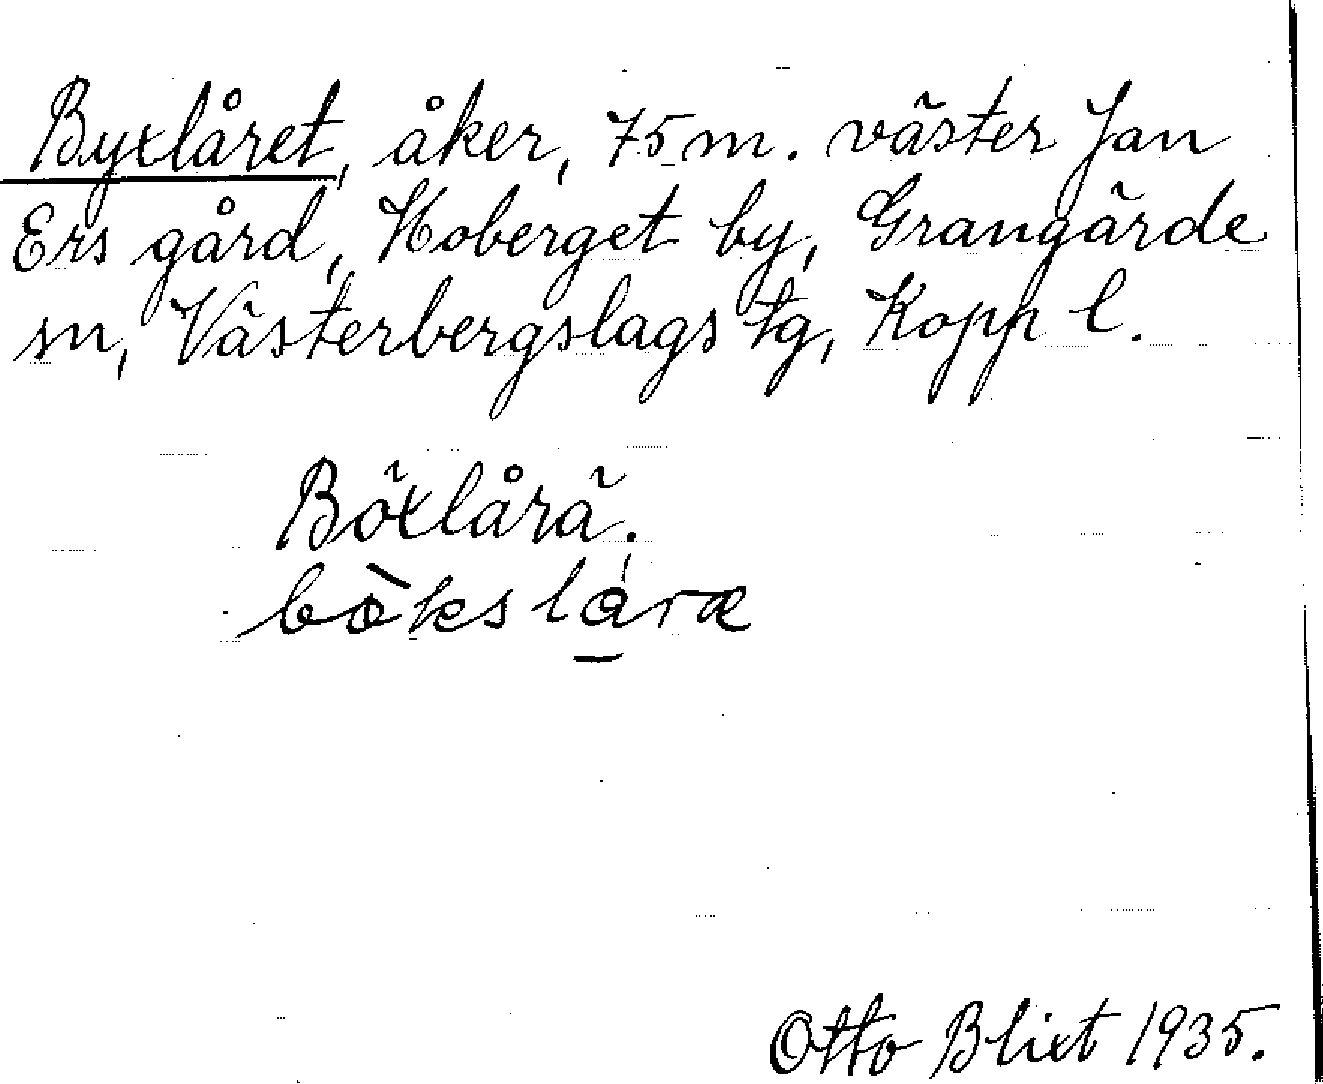 Byxlåret, åker, 75 m. väster Jan
Ers gård, Hoberget by, Grangärde
sn, Västerbergslags tg, Kopp l.
Böxlårä.
bòkslåræ
Otto Blixt 1935.